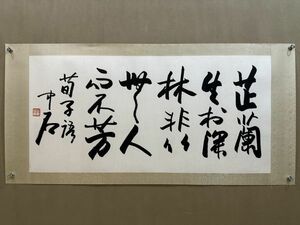 芷蘭
生於深
林非以
無人
而不芳
荀子語
中石